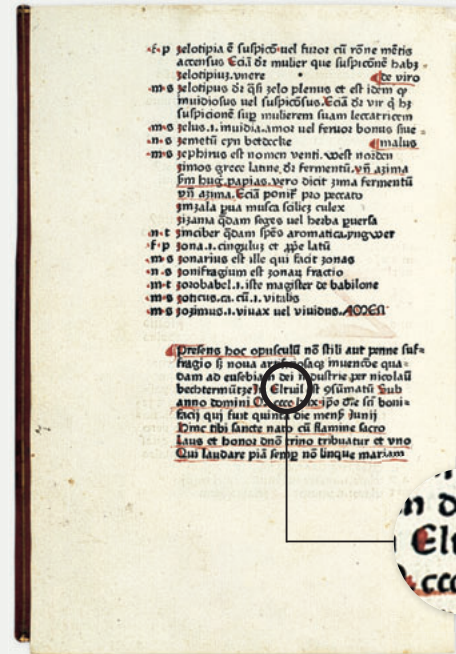 f p zelotipia ē suspicō uel furor cū rōne mētis
accensus Eciā dr mulier que suspicōnē habz
zelotipiuz.vnere de viro
m s zelotipus dr q̄si zelo plenus et est idem qp
inuidiosus uel suspicōsus. Eciā dr vir q̄ hz
suspicionē sup mulierem suam leccatricem
m s zelus.i.inuidia.amor uel feruor bonus siue
n s zemetū eyn betdecke malus
m s zephirus est nomen venti.west norden
zimos grece latine.dr fermentū.vn̄ azima
sm hug.papias.vero dicit zima fermentū
vn̄ azima.Eciā ponit pro peccato
zinzala pua musca scilicz culex
zizania q̄dam seges uel herba puersa
n t zinciber q̄dam spēs aromatica.yngwer
f p zona.i.cingulus et ppe latū
m s zonarius est ille qui facit zonas
n s zonifragium est zonaꝝ fractio
m t zorobabel.i.iste magister de babilone
m s zoticus.ca.cū.i.vitalis
m s zozimus.i.viuax uel viuidus.AMEN
Presens hoc opusculū nō stili aut penne suf-
fragio sz noua artificiosaqz inuencōe qua-
dam ad eusebiam dei industrie per nicolaū
bechtermūtze Eltuil est ɔsūmatū Sub
anno domini boni-
facij qui fuit quinta die mensꝭ Junij
Hinc tibi sancte nato cū flamine sacro
Laus et honor dnō trino tribuatur et vno
Qui laudare piā semp nō linque mariam
Elt